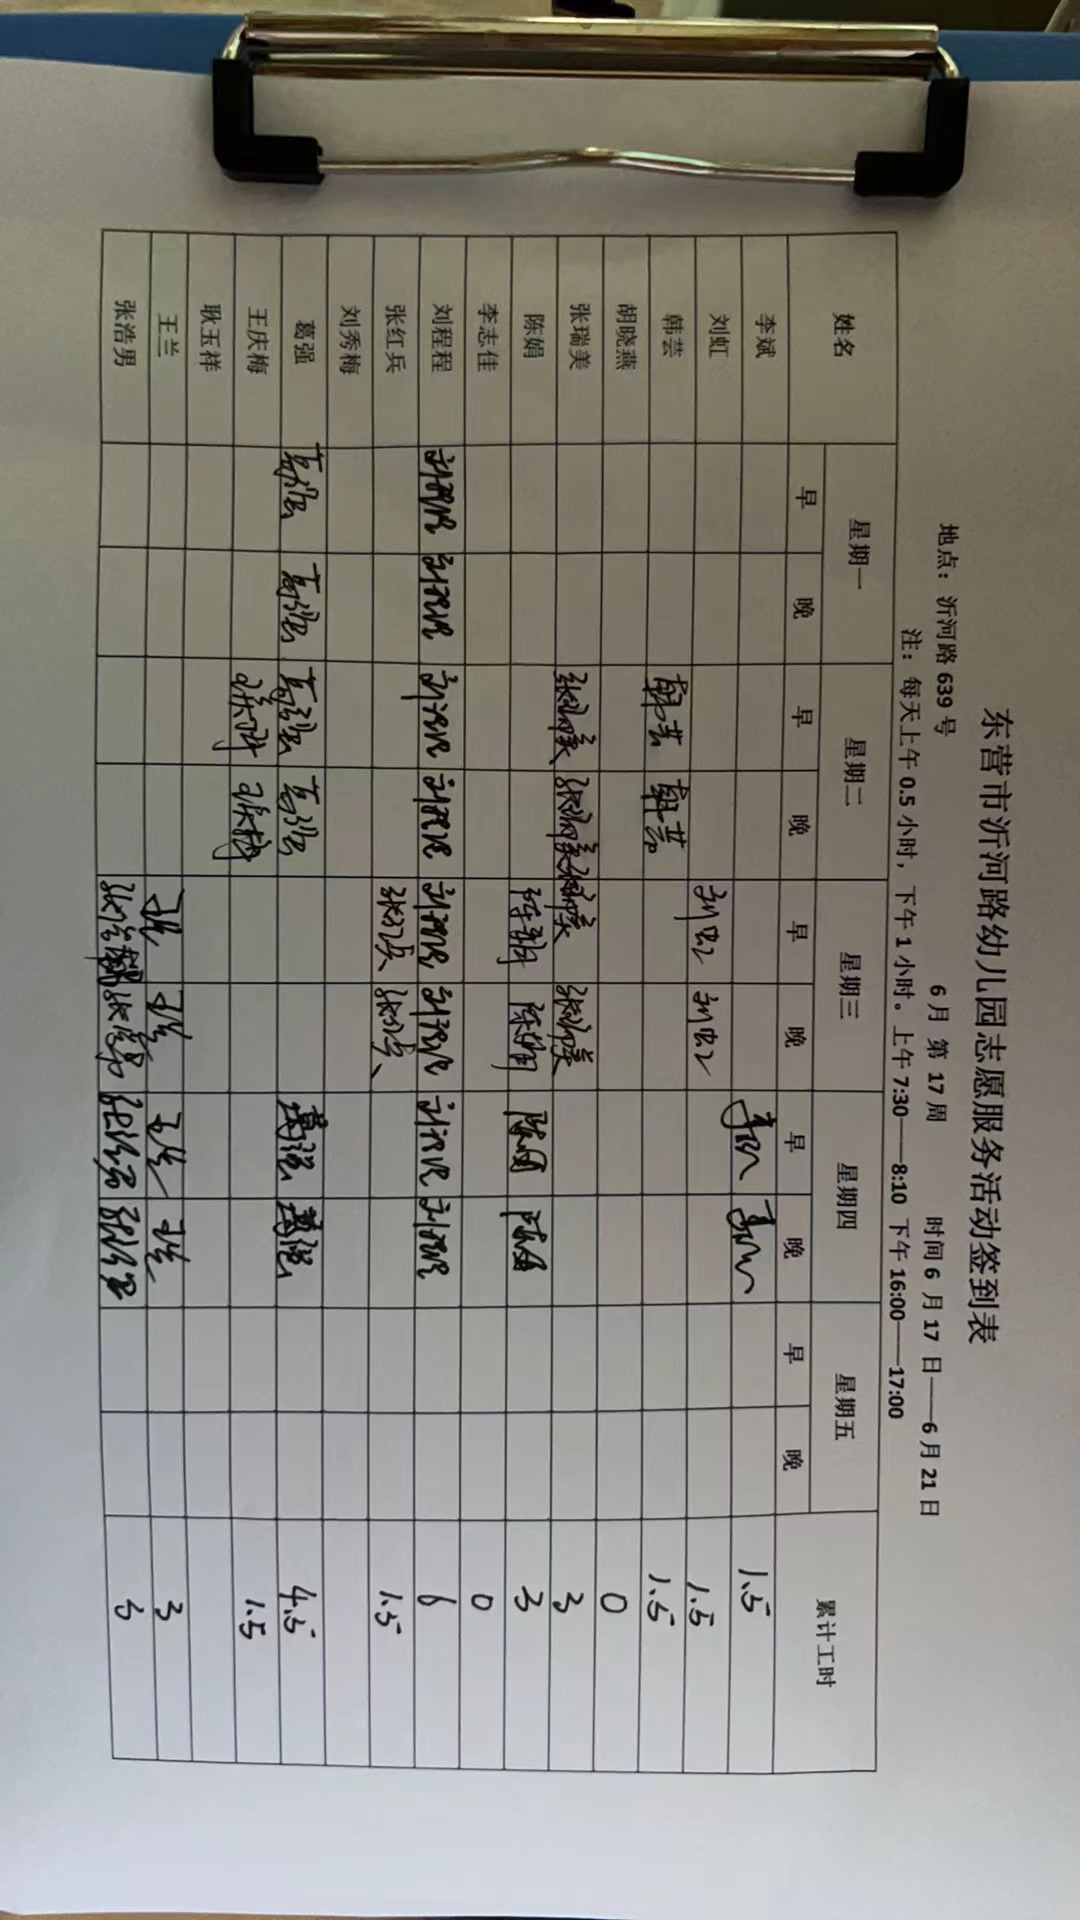 东营市沂河路幼儿园志愿服务活动签到表
6月 第 17 周 时间 6 月 17 日——6 月 21 日
地点：沂河路 639 号
注：每天上午 0.5 小时，下午 1 小时。上午 7:30——8:10 下午 16:00——17:00
姓名 星期一 星期二 星期三 星期四 星期五 累计工时
早 晚 早 晚 早 晚 早 晚 早 晚
李斌 1.5
刘虹 刘虹 刘虹 1.5
韩芸 韩芸 韩芸 1.5
胡晓燕 0
张瑞美 张瑞美 张瑞美 张瑞美 张瑞美 3
陈娟 陈娟 陈娟 陈娟 陈娟 3
李志佳 0
刘程程 刘程程 刘程程 刘程程 刘程程 刘程程 刘程程 刘程程 刘程程 6
张红兵 张红兵 张红兵 1.5
刘秀梅
葛强 葛强 葛强 葛强 葛强 葛强 葛强 4.5
王庆梅 王庆梅 王庆梅 1.5
耿玉祥
王兰 王兰 王兰 王兰 3
张浩男 张浩男 张浩男 张浩男 张浩男 3